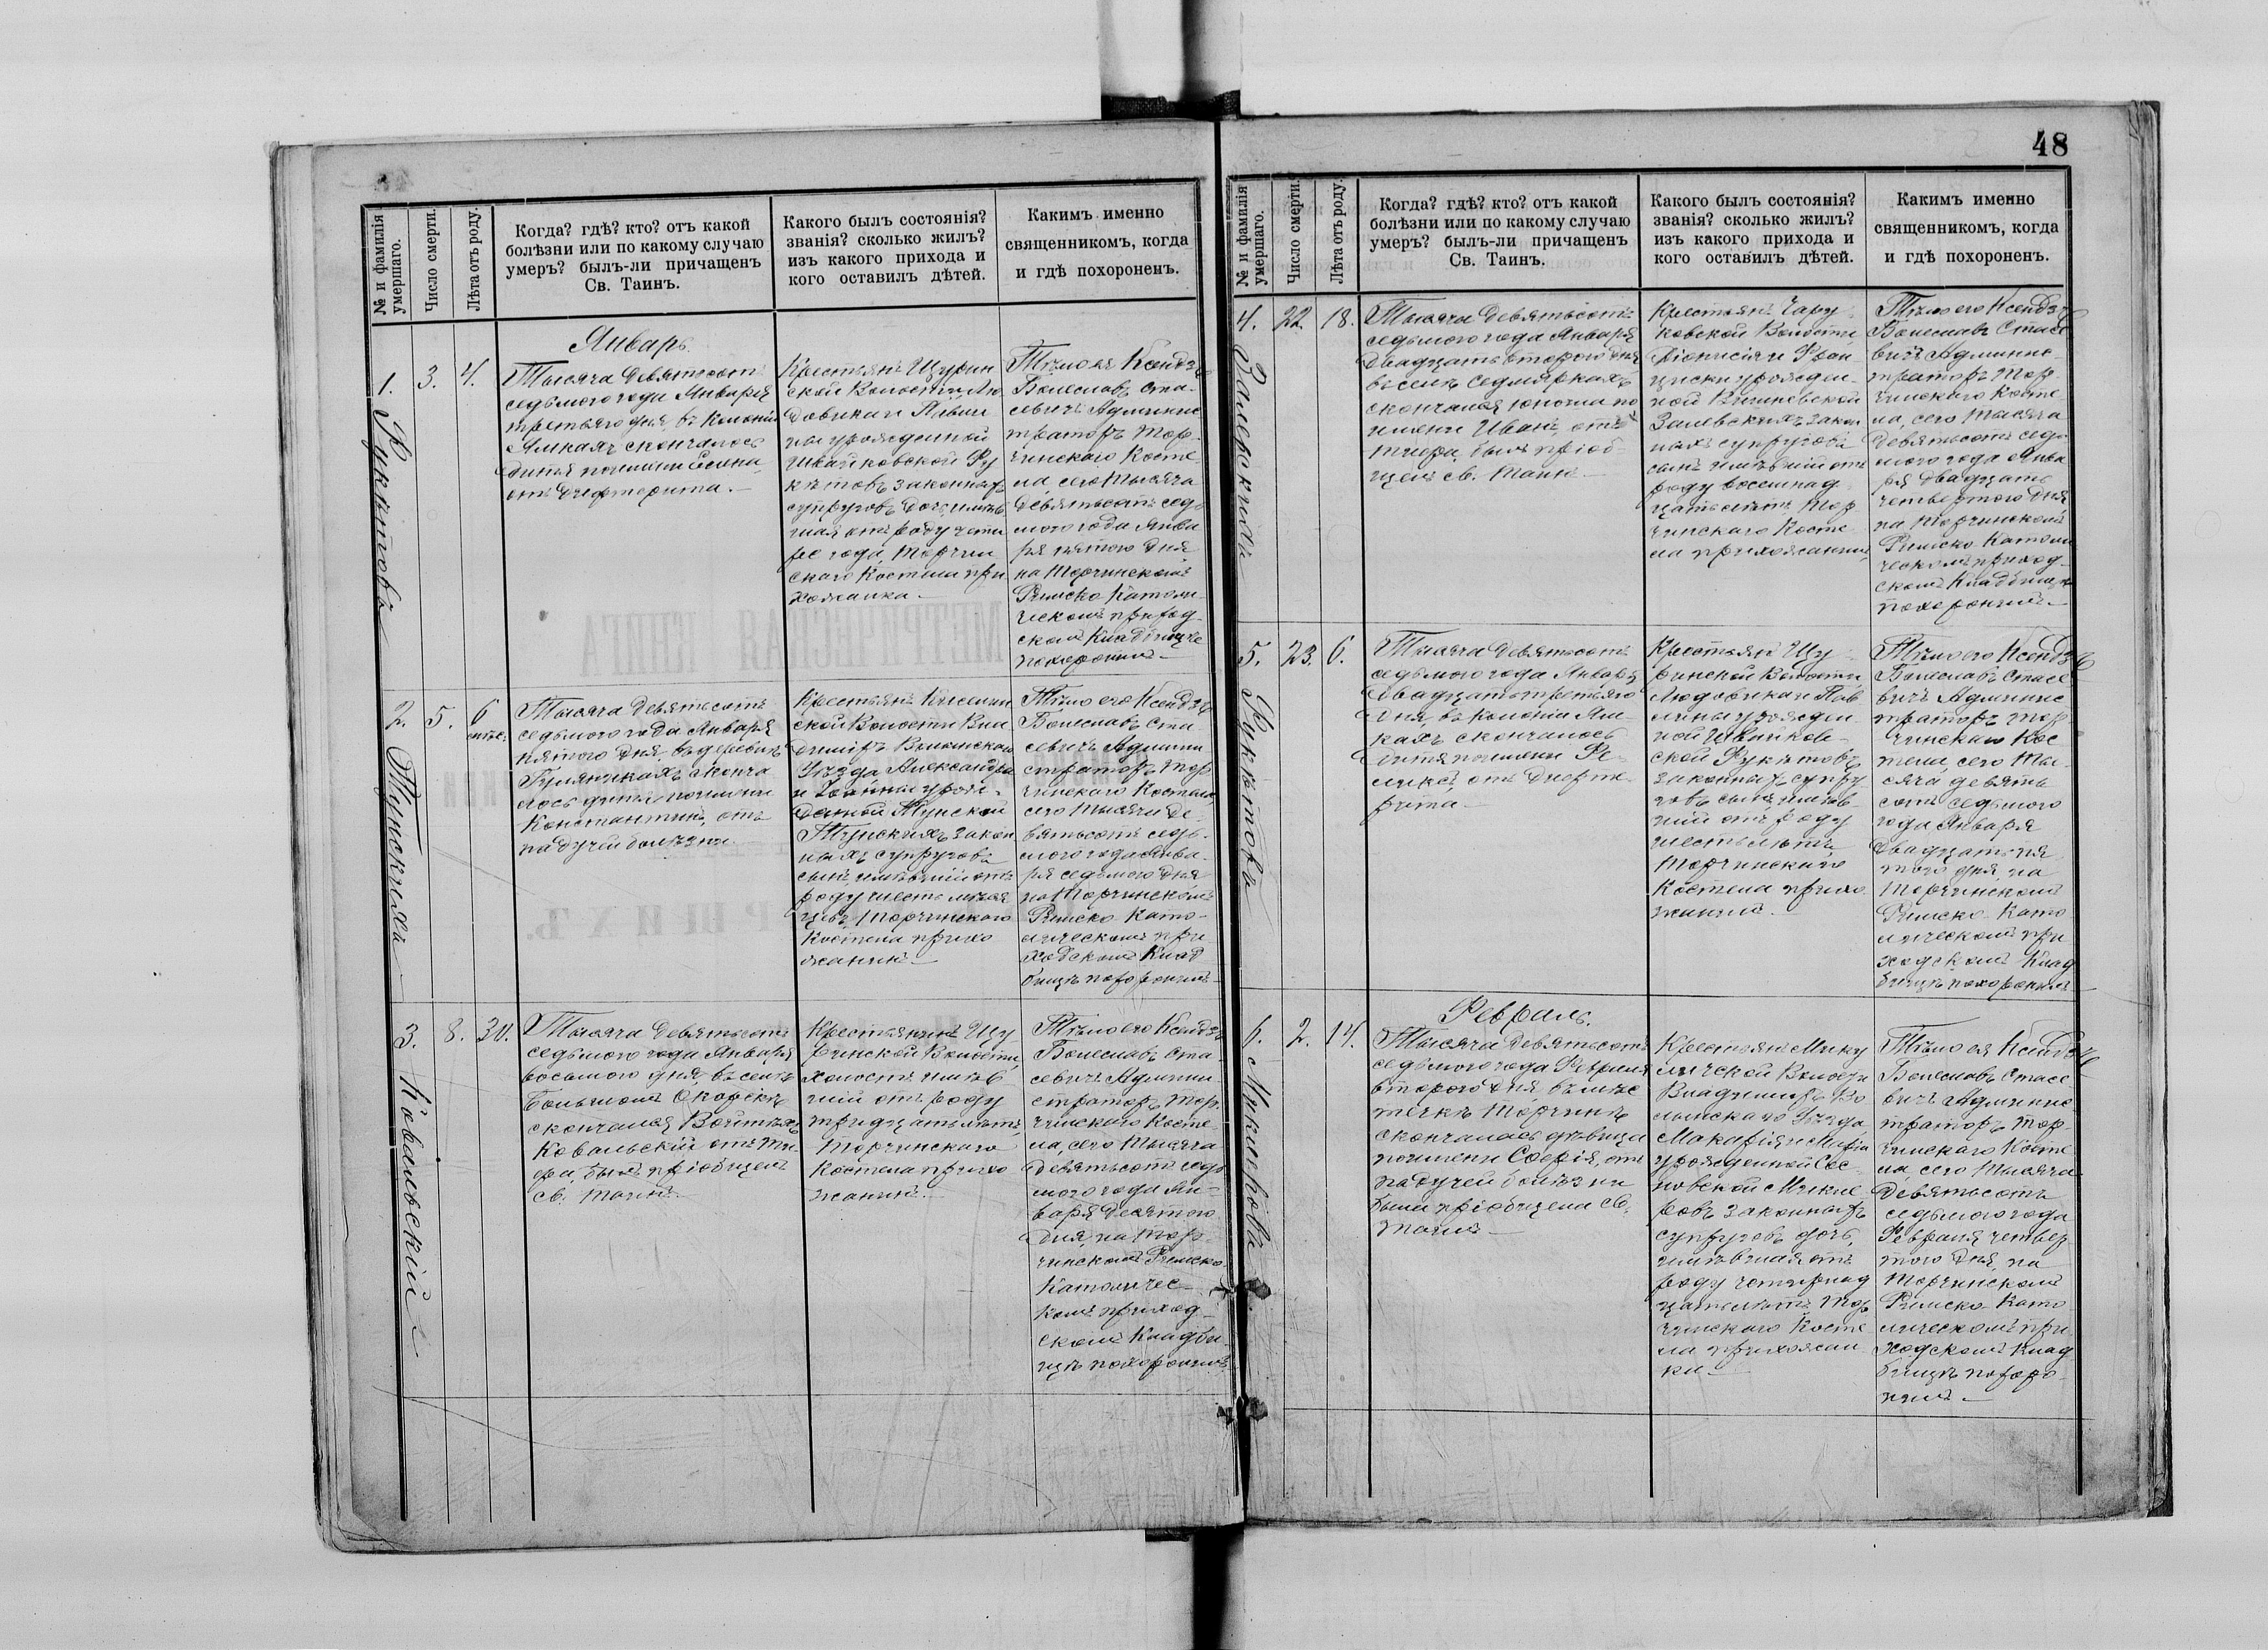 48
№ и фамилія
умершаго.
Число смерти.
Лѣта отъ роду.
Когда? гдѣ? кто? отъ какой
болѣзни или по какому случаю
умеръ? былъ-ли причащенъ
Св. Таинъ.
Какого былъ состоянія?
званія? сколько жилъ?
изъ какого прихода и
кого оставилъ дѣтей.
Каким именно
священникомъ, когда
и гдѣ похороненъ.
Январь.
1.
3.
4.
Тысяча девятьсотъ
седьмого года Января
третьяго дня, въ колоніи
скончалось
дитя по имени Елена,
отъ дифтерита.
Крестьянъ Щурин
ской Волости Лю
довика и Павли
ны урожденной
Ивайковской Ру
кѣтовъ законныхъ
супруговъ дочь, имѣв
шая отъ роду четы
ре года, Торчин
скаго Костела при
хожанка.
Тѣло ея Ксендзъ
Болеславъ Ста
севичъ Админис
траторъ Тор
чинскаго Косте
ла, сего тысяча
девятьсотъ седь
мого года Янва
ря пятого дня
на Торчинскомъ
Римско Католи
ческомъ приход
скомъ Кладбище
похоронилъ
2.
5.
6
мѣс.
Тысяча девятьсотъ
седьмого года Января
пятого дня, въ деревнѣ
сконча
лось дитя по имени
Константинъ, отъ
падучей болѣзни.
Крестьянъ Киселин
ской Волости Вла
диміръ Волынскаго
Уѣзда, Александра
и урож
денной
законныхъ супруговъ
сынъ, имѣвшій отъ
роду шесть мѣся
цевъ, Торчинскаго
Костела прихо
жанинъ
Тѣло его Ксендзъ
Болеславъ Ста
севичъ Админи
страторъ Тор
чинскаго Костела,
сего тысяча де
вятьсотъ седь
мого года Янва
ря седьмого дня
на Торчинскомъ
Римско Като
лическомъ при
ходскомъ Клад
бищѣ похоронилъ
3. Ковальскій
8.
30.
Тысяча девятьсотъ
седьмого года Января
восьмого дня, въ селѣ
Большомъ
скончался Войтѣхъ
Ковальскій отъ ти
фа, былъ пріобщенъ
св. таинъ.
Крестьянинъ Щу
ринской Волости,
холостъ имѣв
шій отъ роду
тридцать лѣтъ,
Торчинскаго
Костела прихо
жанинъ.
Тѣло его Ксендзъ
Болеславъ Ста
севичъ Админи
страторъ Тор
чинскаго Косте
ла, сего тысяча
девятьсотъ седь
мого года Ян
варя десятого
дня, на Тор
чинскомъ Римско
Католичес
комъ приход
скомъ Кладби
щѣ похоронилъ
№ и фамилія
умершаго.
Число смерти.
Лѣта отъ роду.
Когда? гдѣ? кто? отъ какой
болѣзни или по какому случаю
умеръ? былъ-ли причащенъ
Св. Таинъ.
Какого былъ состоянія?
званія? сколько жилъ?
изъ какого прихода и
кого оставилъ дѣтей.
Каким именно
священникомъ, когда
и гдѣ похороненъ.
4.
22.
18.
Тысяча девятьсотъ
седьмого года Января
двадцать второго дня
въ селѣ Седмяркахъ
скончался юноша по
имени Иванъ, отъ
тифа, былъ пріоб
щенъ св. таинъ
Крестьянъ Чару
ковской Волости
Діонисія и Фран
циски урожден
ной Вишневской
Залевскихъ закон
ныхъ супруговъ
сынъ имѣвшій отъ
роду восемнад
цать лѣтъ, Тор
чинскаго Косте
ла прихожанинъ
Тѣло его Ксендзъ
Болеславъ Стасе
вичъ Админис
траторъ Тор
чинскаго Косте
ла, сего тысяча
девятьсотъ седь
мого года Янва
ря двадцать
четвертого дня
на Торчинскомъ
Римско Католи
ческомъ приход
скомъ Кладбищѣ
похоронилъ
5. Рукѣтовъ
23.
6.
Тысяча девятьсотъ
седьмого года Января
двадцать третьяго
дня, въ колоніи
скончалось
дитя по имени Фе
ликсъ, отъ дифте
рита
Крестьянъ Щу
ринской Волости
Людовика и Пав
лины урожден
ной Ивайков
ской Рукѣтовъ
законныхъ супру
говъ сынъ, имѣв
шій отъ роду
шесть лѣтъ,
Торчинскаго
Костела прихо
жанинъ
Тѣло его Ксендзъ
Болеславъ Стасе
вичъ Админис
траторъ Тор
чинскаго Кос
тела, сего ты
сяча девять
сотъ седьмого
года Января
двадцать пя
того дня, на
Торчинскомъ
Римско Като
лическомъ при
ходскомъ Клад
бищѣ похоронилъ
Февраль.
6.
2.
14.
Тысяча девятьсотъ
седьмого года Февраля
второго дня, въ мѣс
течкѣ Торчинѣ
скончалась дѣвица
по имени Софія, отъ
падучей болѣзни
была пріобщена св.
таинъ
Крестьянъ Мику
личской Волости
Владиміръ Во
лынскаго Уѣзда,
Макарія и Маріи
урожденной Сос
новской
законныхъ
супруговъ дочь,
имѣвшая отъ
роду четырнад
цать лѣтъ, Тор
чинскаго Косте
ла прихожан
ка
Тѣло ея Ксендзъ
Болеславъ Стасе
вичъ Админис
траторъ Тор
чинскаго Косте
ла, сего тысяча
девятьсотъ
седьмого года
Февраля четвер
того дня, на
Торчинскомъ
Римско Като
лическомъ при
ходскомъ Клад
бищѣ похоро
нилъ